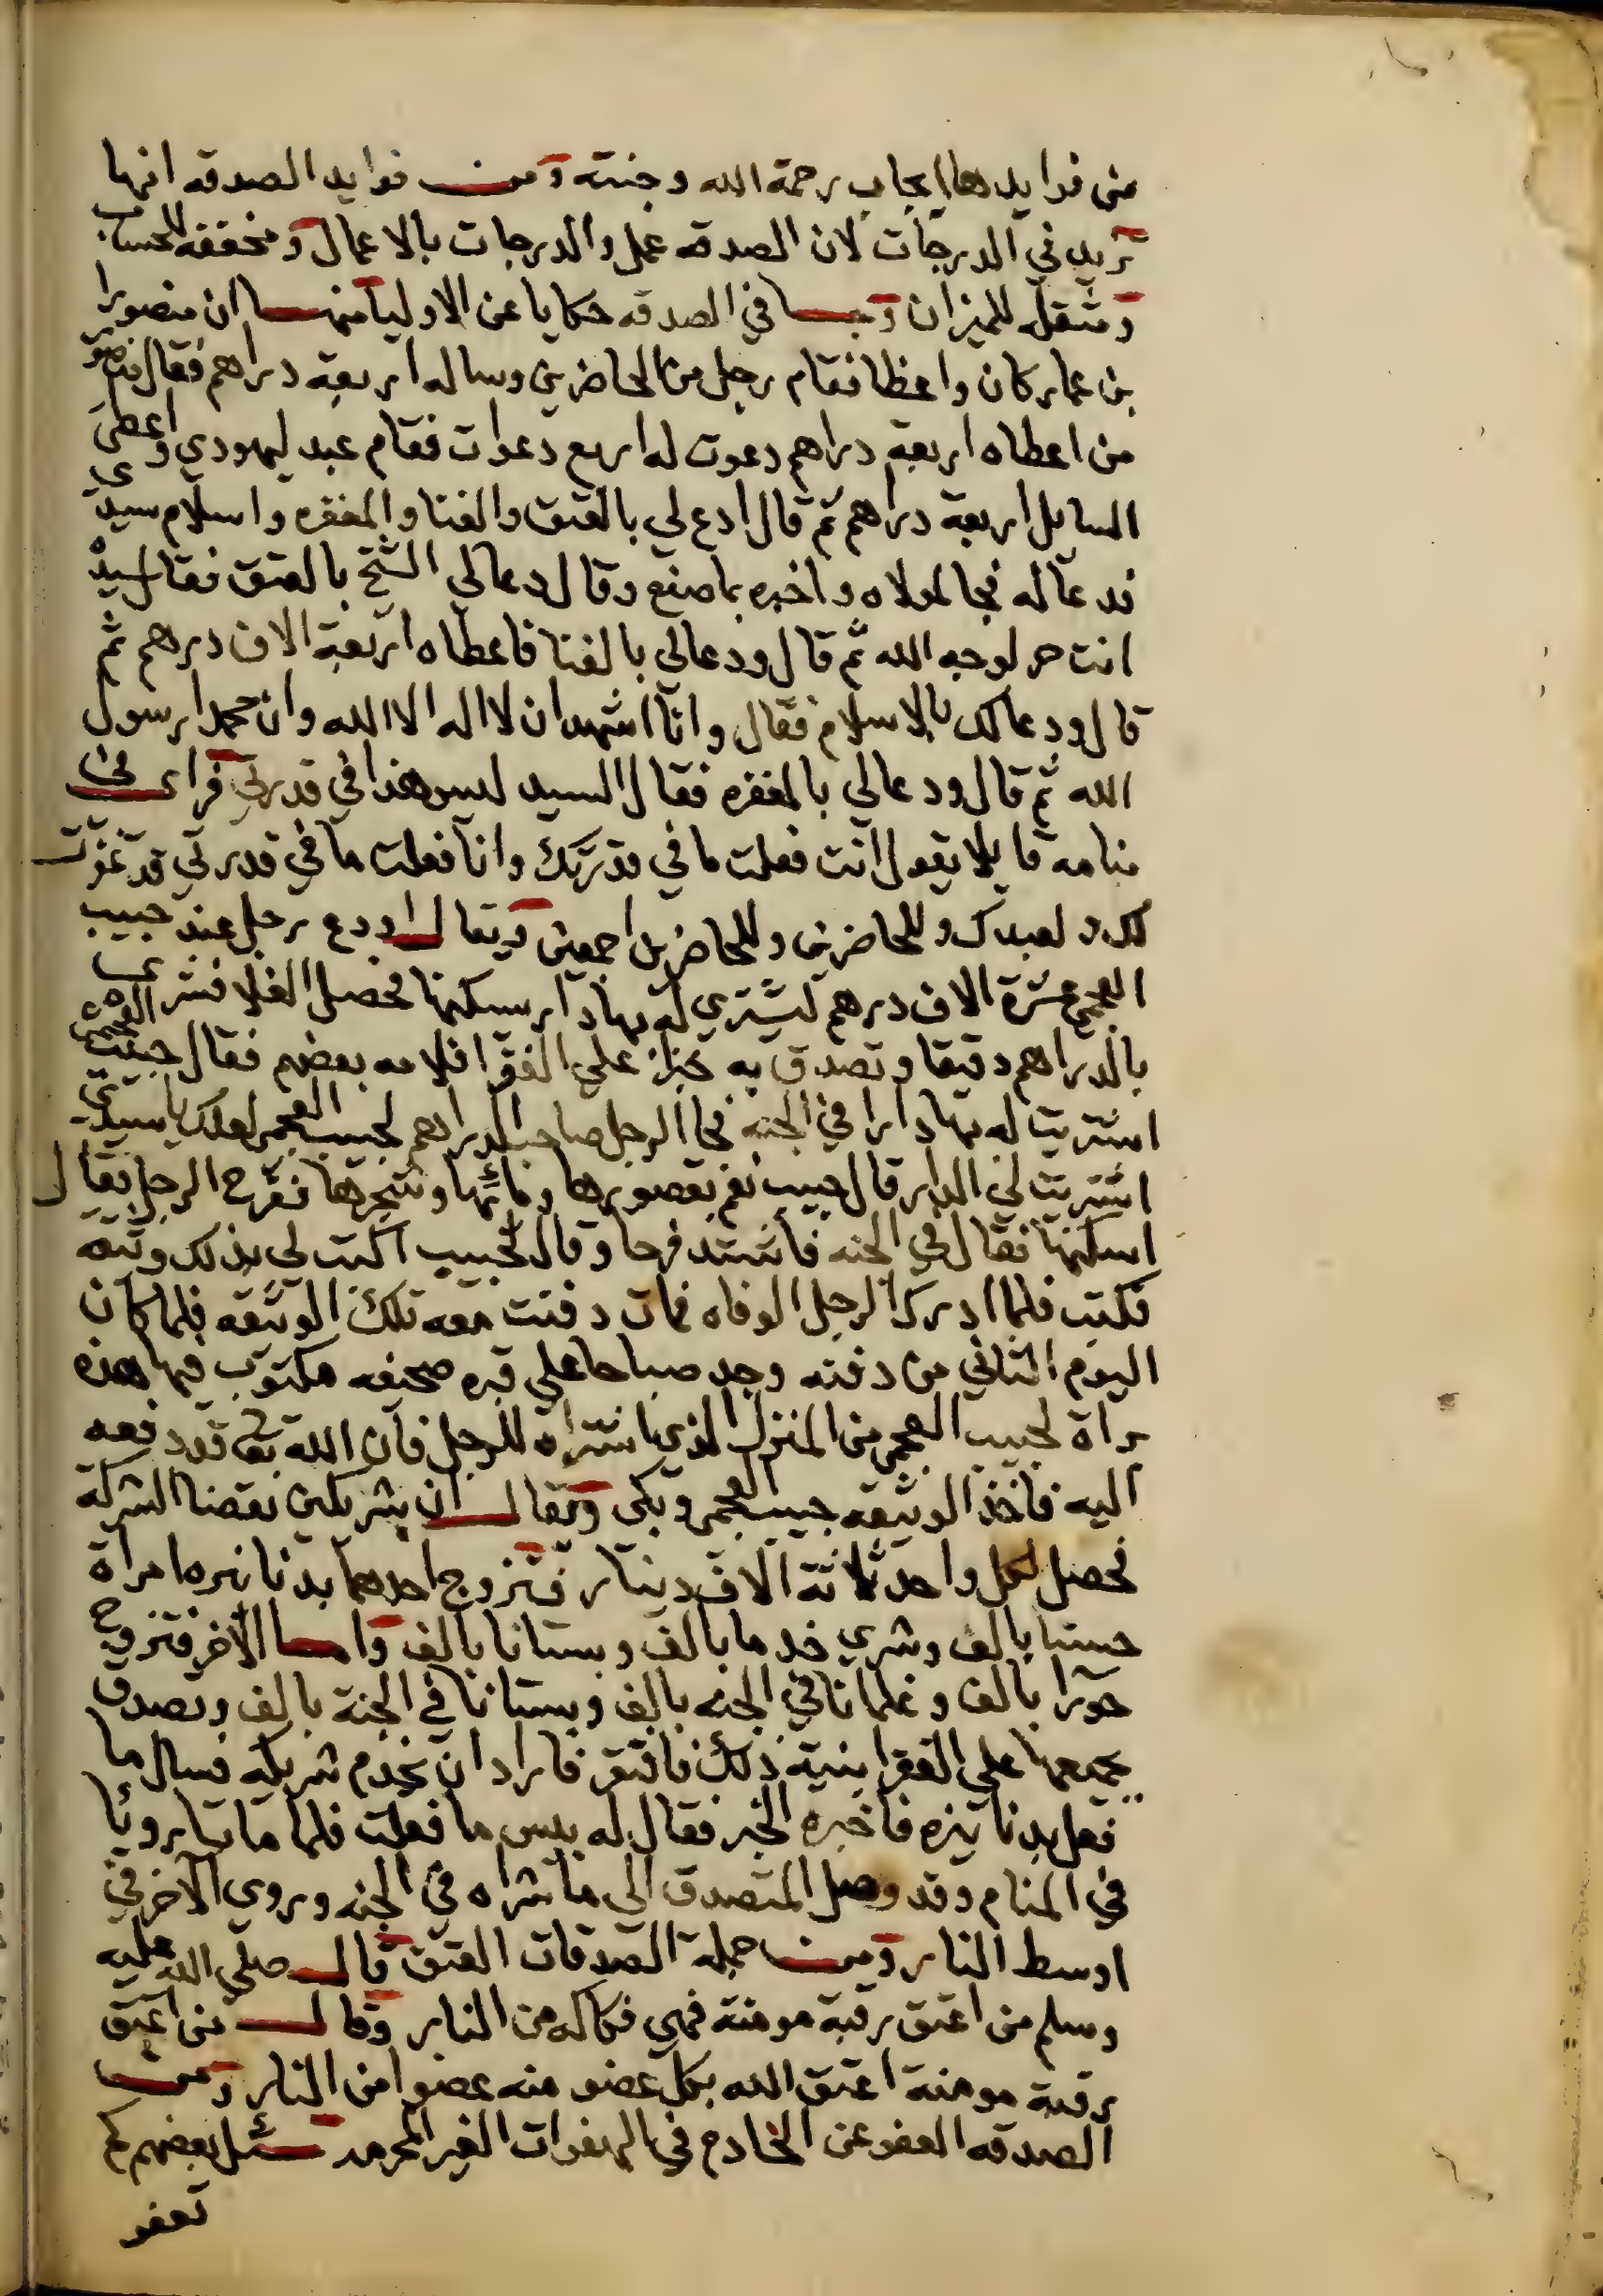 من فوايدها ايجاب رحمة الله وجنته ومن فوايد الصدقه انها
تزيد في الدرجات لان الصدقه عمل والدرجات بالاعمال ومخففه للحساب
ومثقله للميزان وجا في الصدقه حكايا عن الاوليا منها ان منصورا
بن عمار كان واعظا فقام رجل من الحاضرين وساله اربعة دراهم فقال منصور
من اعطاه اربعة دراهم دعوت له اربع دعوات فقام عبد ليهودي واعطى
السايل اربعة دراهم ثم قال ادع لي بالعتق والغنا والمغفره واسلام سيدي
فدعا له فجا لمولاه واخبره بما صنع وقال دعا لي الشيخ بالعتق فقال سيده
انت حر لوجه الله ثم قال ودعا لي بالغنا فاعطاه اربعة الاف درهم ثم
قال ودعا لك بالاسلام فقال وانا اشهد ان لا اله الا الله وان محمدا رسول
الله ثم قال ودعا لي بالمغفره فقال السيد ليس هذا في قدرتي فراى في
منامه قايلا يقول انت فعلت ما في قدرتك وانا فعلت ما في قدرتي قد غفرت
لك ولعبدك وللحاضرين وللحاضرين اجمعين ويقال اودع رجل عند حبيب
العجمي عشرة الاف درهم ليشتري له بها دار يسكنها فحصل الغلا فشرى
بالدراهم دقيقا وتصدق به خبزا علي الفقرا فلامه بعضهم فقال حبيب العجمي
اشتريت له بها دارا في الجنه فجا الرجل صاحب الدراهم لحبيب العجمي لعلك يا سيدي
اشتريت لي الدار قال حبيب نعم بقصورها ومائها وشجرها ففرح الرجل فقال
اسكنها فقال في الجنه فاشتد فرحا وقال لحبيب اكتب لي بذلك وثيقه
فكتب فلما ادرك الرجل الوفاه فمات دفنت معه تلك الوثيقه فلما كان
اليوم الثاني من دفنه وجد صباحا علي قبره صحيفه مكتوب فيها هذه
براة لحبيب العجمي من المنزل الذي اشتراه للرجل فان الله تعا قد دفعه
اليه فاخذ الوثيقه حبيب العجمي وبكى ويقال ان شريكين نقضا الشركة
فحصل لكل واحد ثلاثة الاف دينار فتزوج احدهما بدنانيره امراة
حسنا بالف وشري خدما بالف وبستانا بالف واما الاخر فتزوج
حورا بالف وغلمانا في الجنه بالف وبستانا في الجنة بالف وتصدق
بجميعها علي الفقرا بنية ذلك فافتقر فاراد ان يخدم شريكه فسال ما
فعل بدنانيره فاخبره الخبر فقال له بيس ما فعلت فلما ماتا رويا
في المنام وقد وصل المتصدق الي ما شراه في الجنه وروي الاخر في
اوسط النار ومن جملة الصدقات العتق قال صلي الله عليه
وسلم من اعتق رقبة مومنة فهي فكاكه من النار وقال من اعتق
رقبة مومنة اعتق الله بكل عضو منه عضوا من النار ومن
الصدقه العفو عن الخادم في الهفوات الغير المحرمه سئل بعضهم كم
تعفو